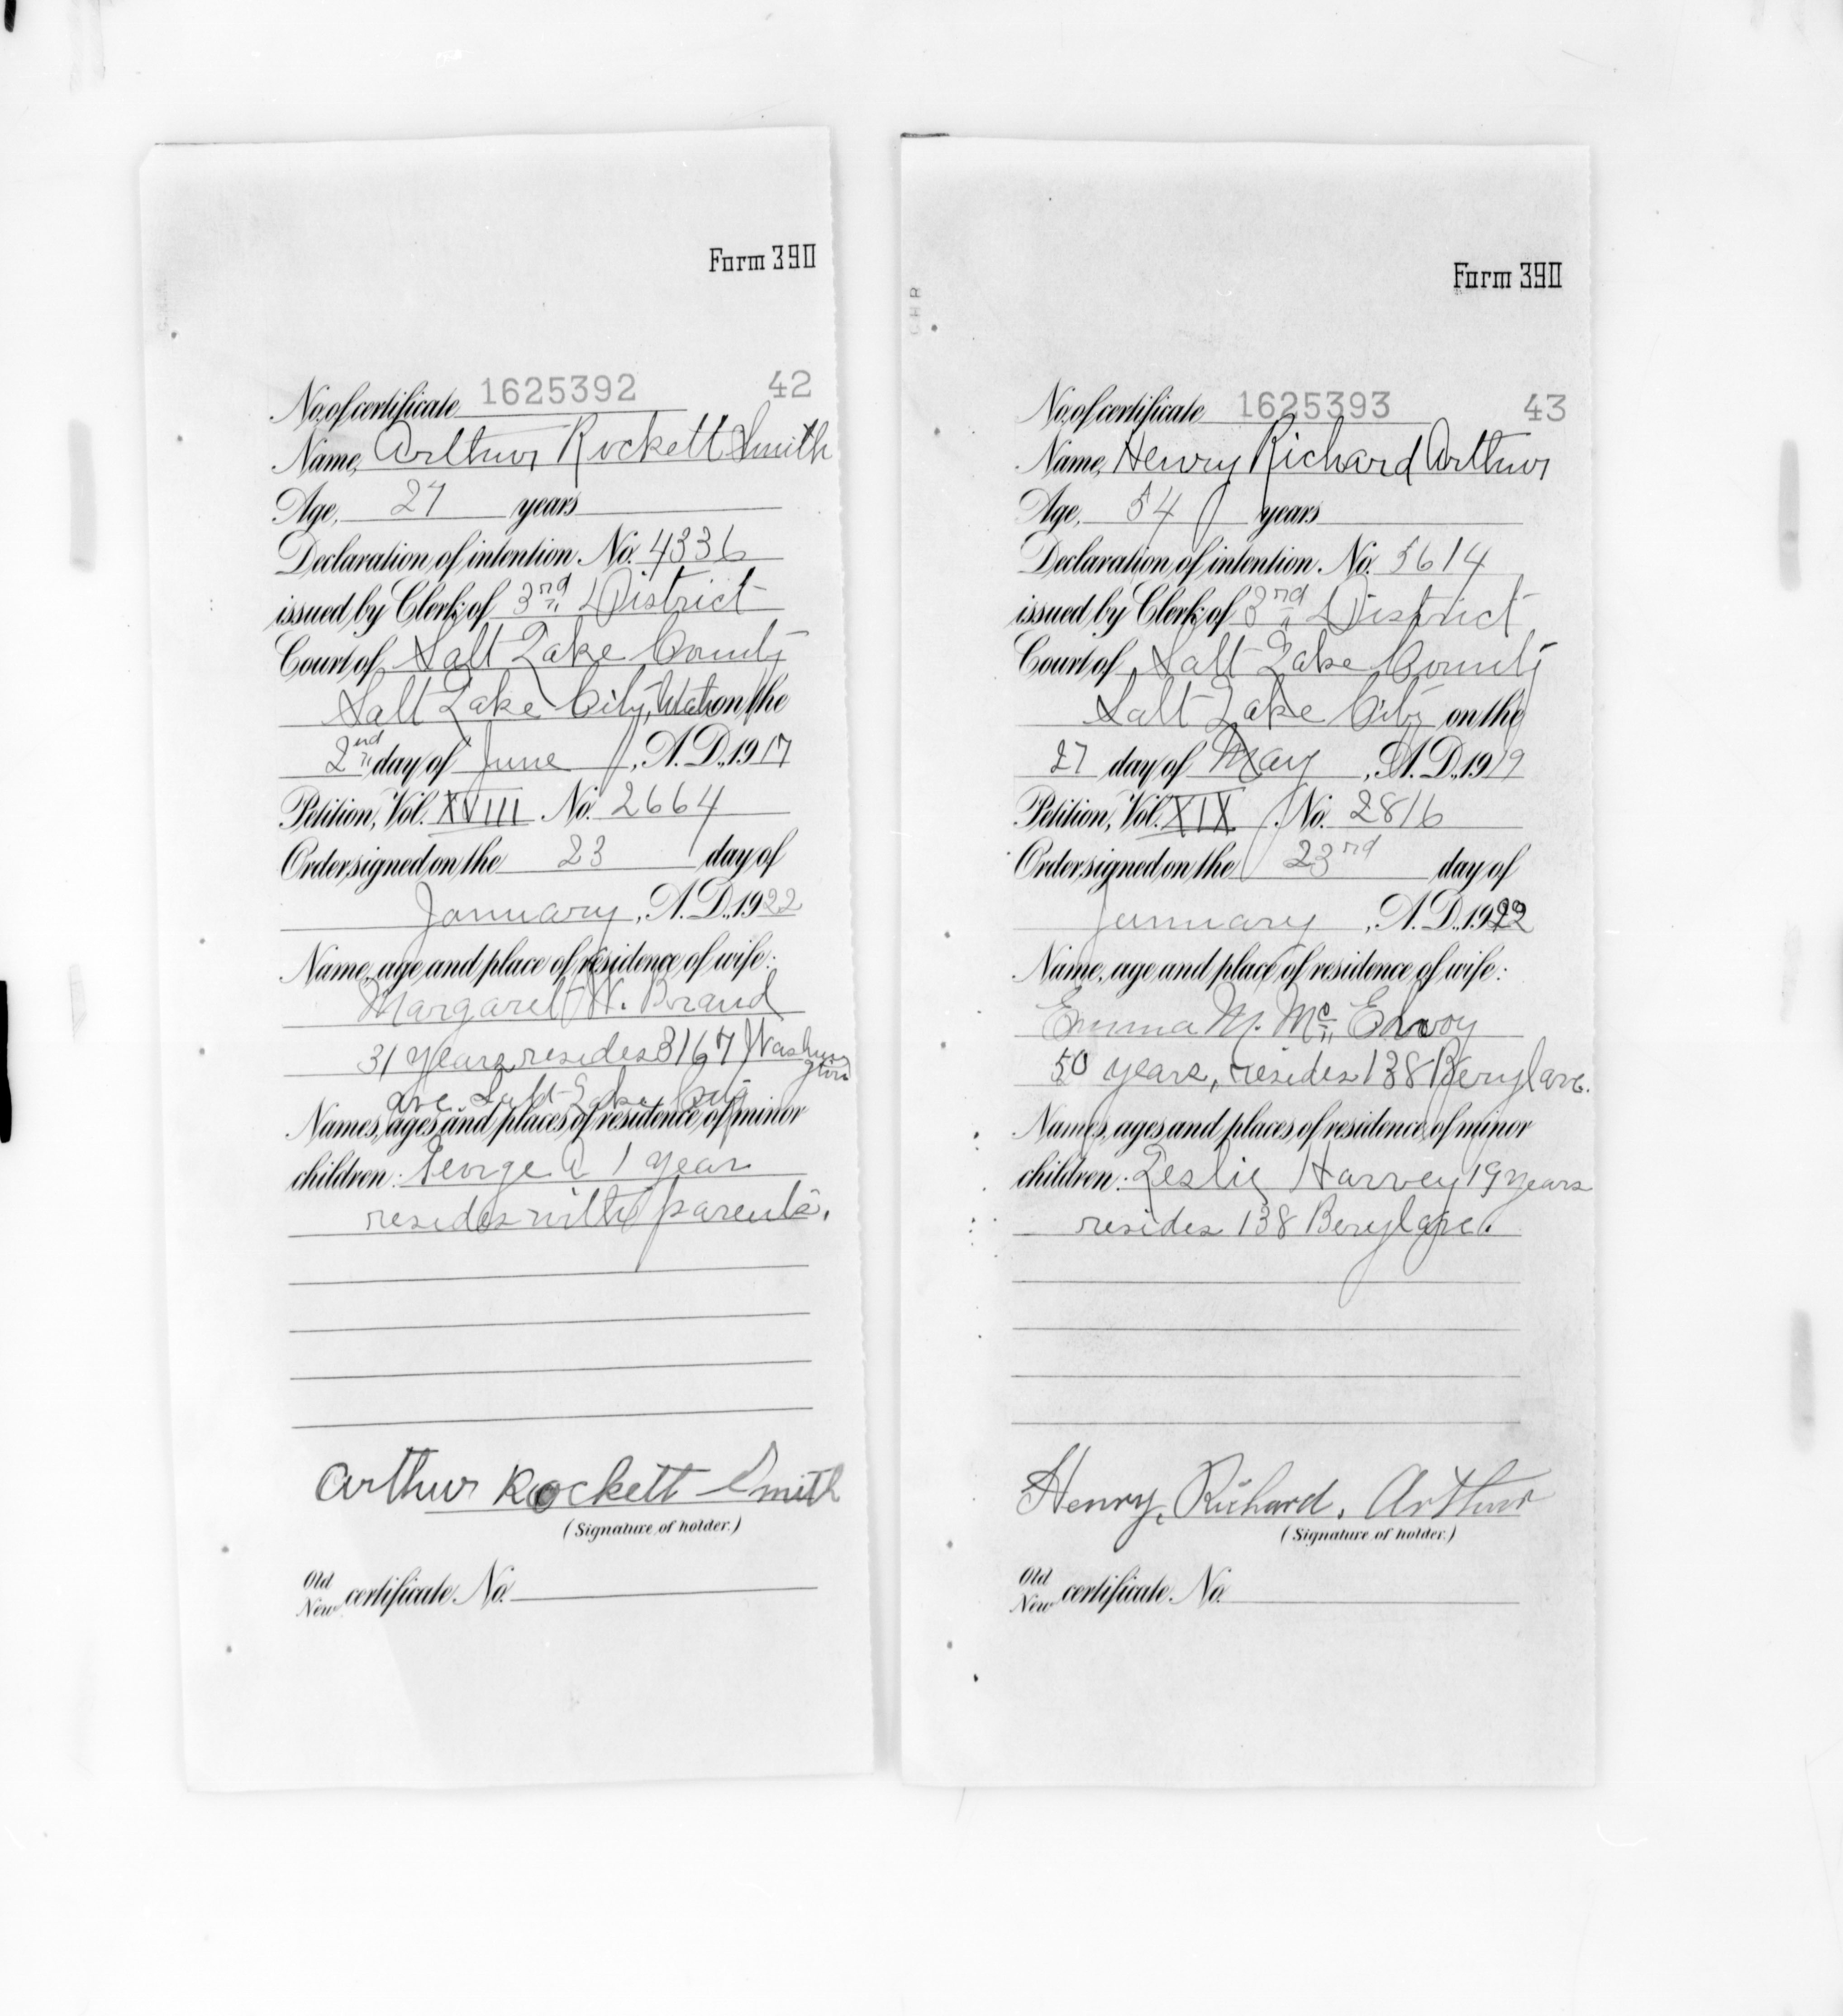 Form 390
No. of certificate 1625392 42
Name, Arthur Rockett Smith
Age, 27 years
Declaration of intention No. 4336
issued by Clerk of 3rd District
Court of Salt Lake County
Salt Lake City, Utah on the
2nd day of June, A.D. 1917
Petition, Vol. XVIII No. 2664
Order signed on the 23 day of
January, A.D. 1922
Name, age and place of residence of wife:
Margaret W. Brand
31 years resides 3167 Washington
ave Salt Lake City
Names, ages and places of residence of minor
children: George A 1 year
resides with parents.
Arthur Rockett Smith
(Signature of holder.)
Old
New certificate No.
Form 390
CHR
No. of certificate 1625393 43
Name, Henry Richard Arthur
Age, 54 years
Declaration of intention No. 5614
issued by Clerk of 3rd District
Court of Salt Lake County
Salt Lake City on the
27 day of May, A.D. 1919
Petition, Vol. XIX No. 2816
Order signed on the 23rd day of
January, A.D. 1922
Name, age and place of residence of wife:
Emma M. Mc Envoy
50 years, resides 138 Beryl ave.
Names, ages and places of residence of minor
children: Leslie Harvey 19 years
resides 138 Beryl ave.
Henry, Richard. Arthur
(Signature of holder.)
Old
New certificate No.